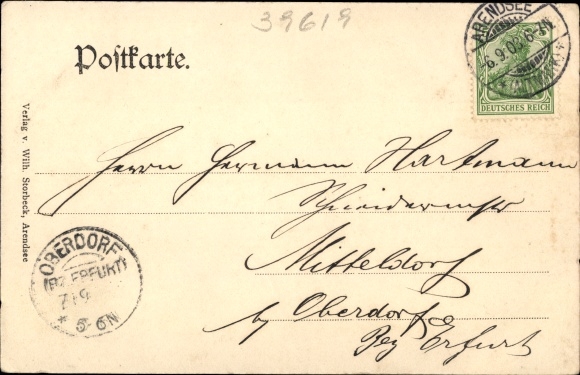 39619
Postkarte.
ARENDSEE
6.9.03.6-7N
* (ALTMARK) *
DEUTSCHES REICH
Verlag v. Wilh. Storbeck, Arendsee
Herrn Hermann Hartmann
Schneidermstr
Mitteldorf
by Oberdorf
Bez Erfurt
OBERDORF
(BZ. ERFURT)
7 9
* 5-6N